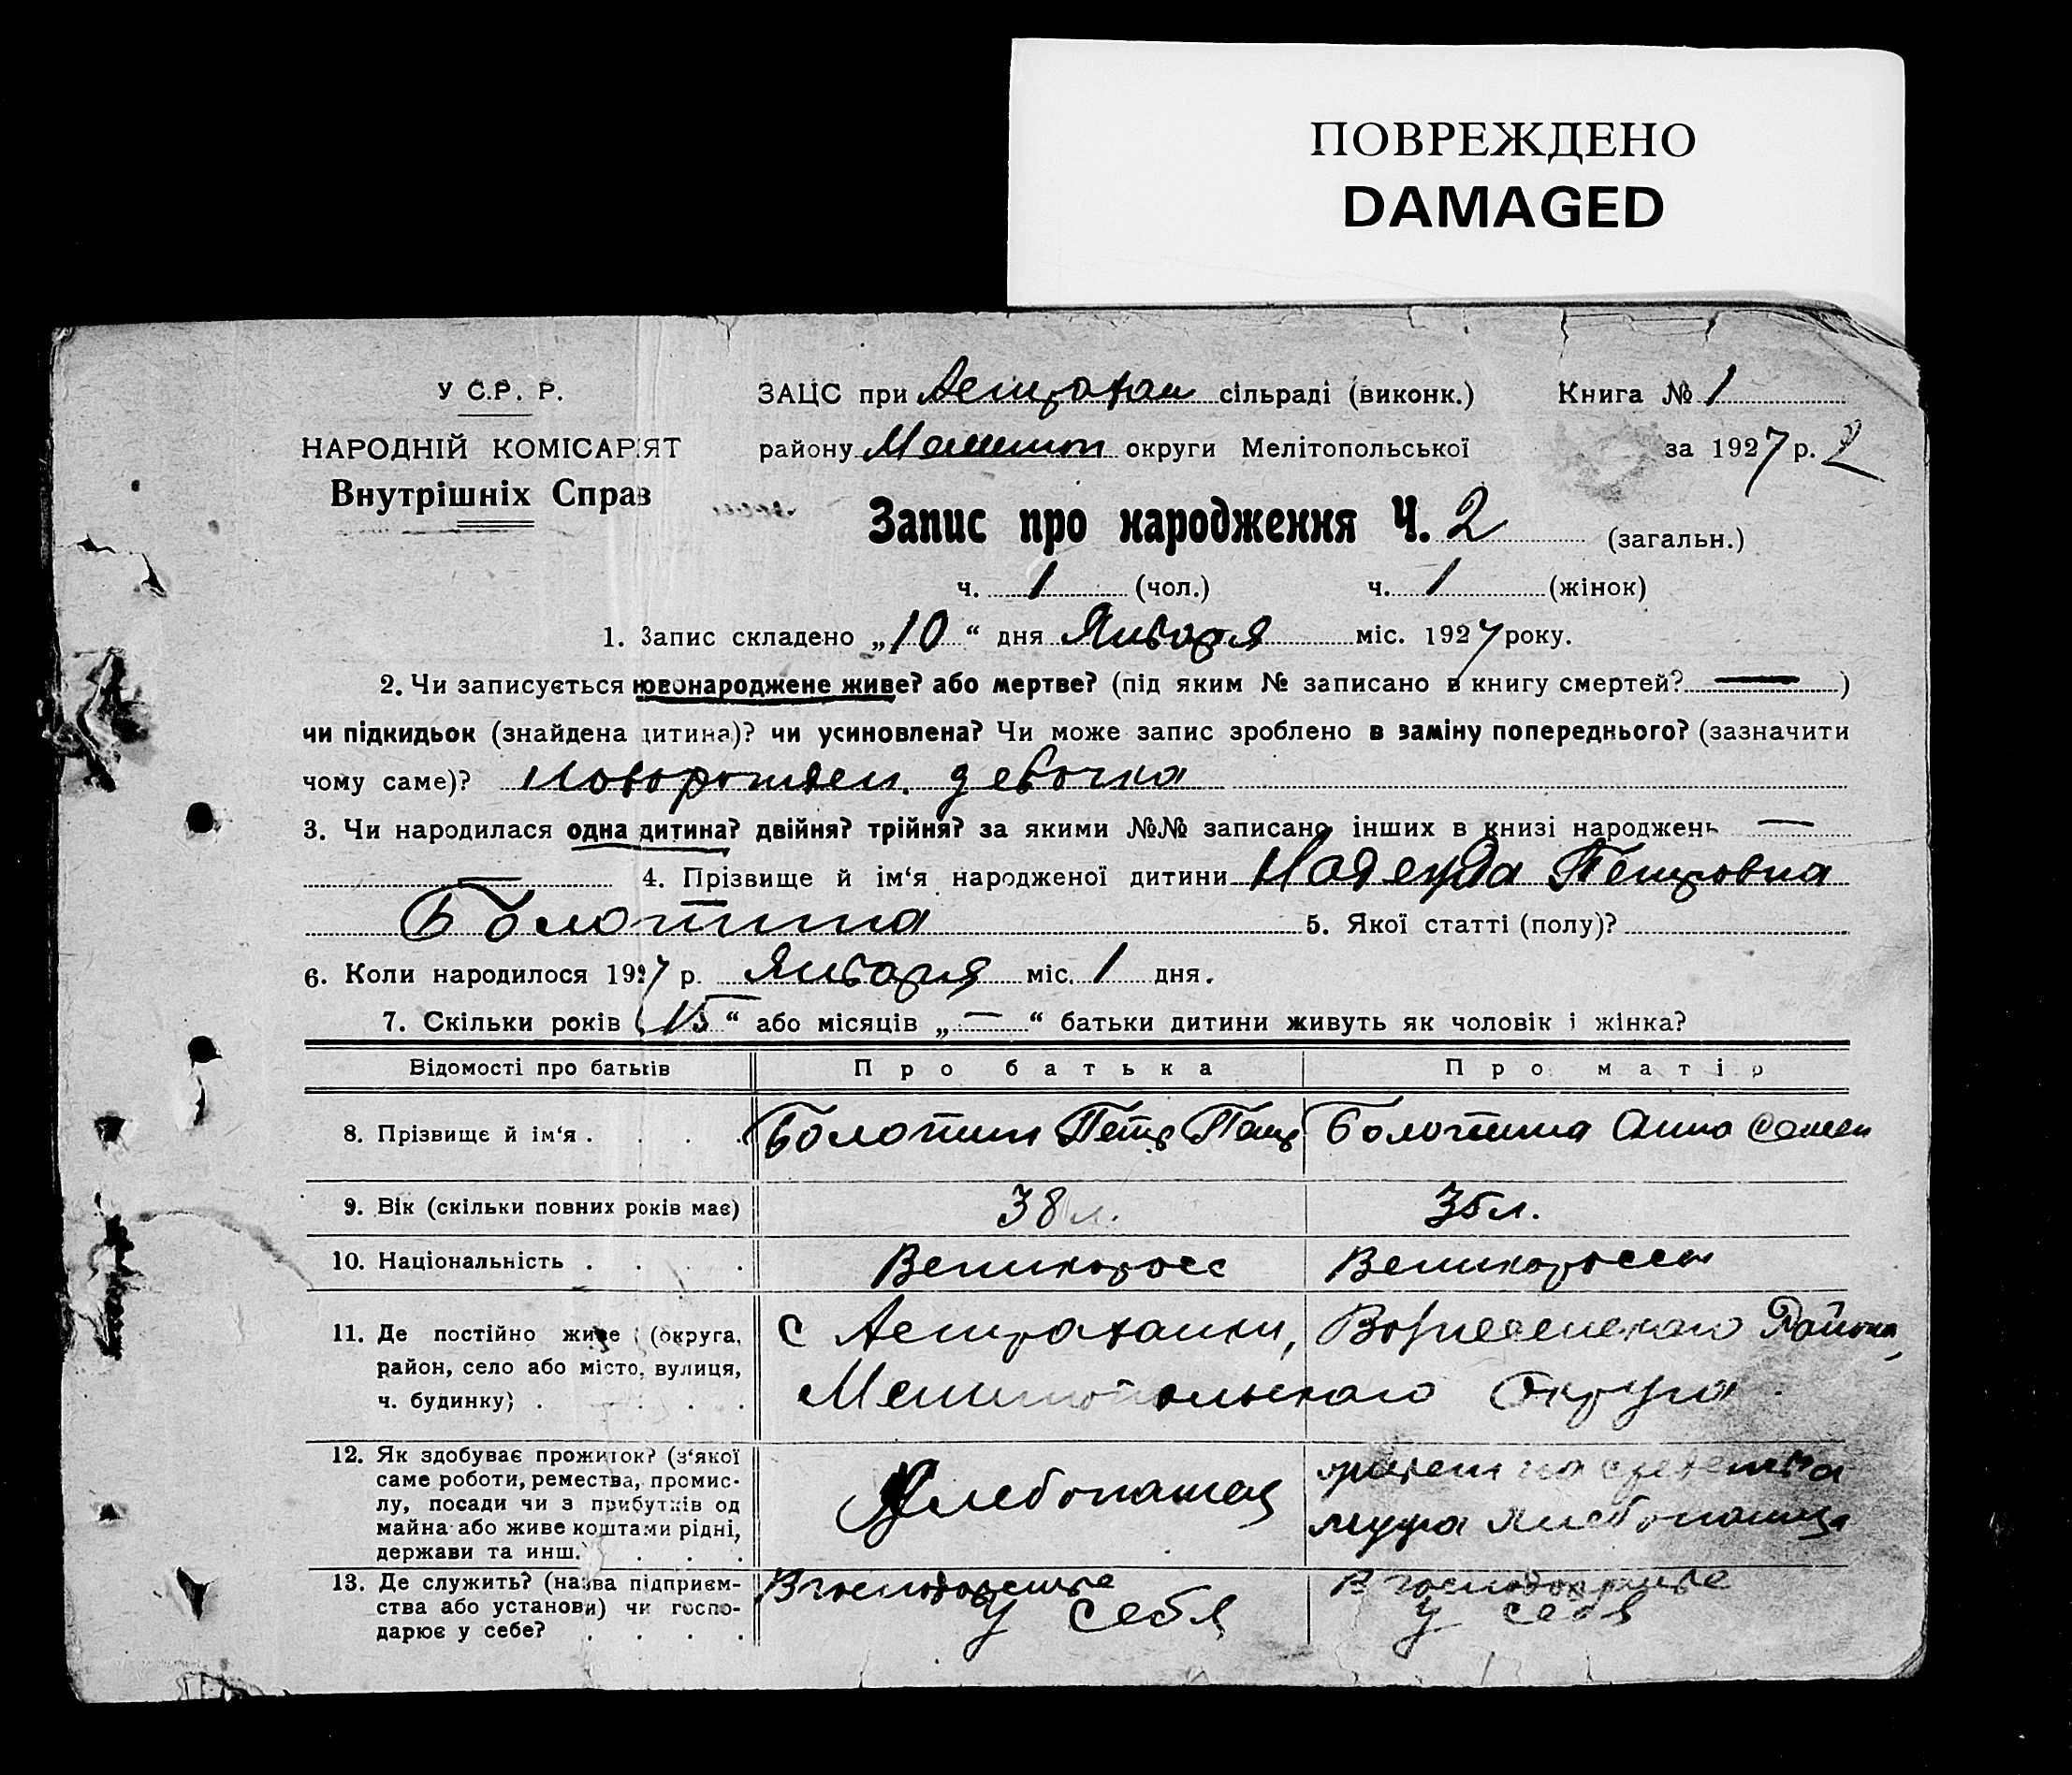 ПОВРЕЖДЕНО
DAMAGED
У С.Р.Р.
ЗАЦС при Астрахан сільраді (виконк.) Книга № 1
НАРОДНІЙ КОМІСАР'ЯТ
району округи Мелітопольської за 1927 р. 2
Внутрішніх Справ
Запис про народження Ч. 2 (загальн.)
ч. 1 (чол.) ч. 1 (жінок)
1. Запис складено „10“ дня Января міс. 1927 року.
2. Чи записується новонароджене живе? або мертве? (під яким № записано в книгу смертей? —)
чи підкидьок (знайдена дитина)? чи усиновлена? Чи може запис зроблено в заміну попереднього? (зазначити
чому саме)? новорожден. девочка
3. Чи народилася одна дитина? двійня? трійня? за якими №№ записано інших в книзі народжень —
— 4. Прізвище й ім‘я народженої дитини Надежда Петровна
Болотина 5. Якої статті (полу)?
6. Коли народилося 1927 р. Января міс. 1 дня.
7. Скільки років „15“ або місяців „—“ батьки дитини живуть як чоловік і жінка?
Відомості про батьків Про батька Про матір
8. Прізвище й ім‘я . . . . Болотин Петр Петр Болотина Анна Семен
9. Вік (скільки повних років має) 38 л. 35 л.
10. Національність . . . . Великоросс Великоросса
11. Де постійно живе (округа, с Астраханки, Вознесенскаго Района,
район, село або місто, вулиця,
ч. будинку) . . . . Мелитопольскаго Округа
12. Як здобуває прожиток? (з‘якої живет на средства
саме роботи, ремества, промис-
лу, посади чи з прибутків од Хлебопашец мужа Хлебопашца
майна або живе коштами рідні,
держави та инш. . . .
13. Де служить? (назва підприєм-
ства або установи) чи госпо- у себя у себя
дарює у себе? . . . .